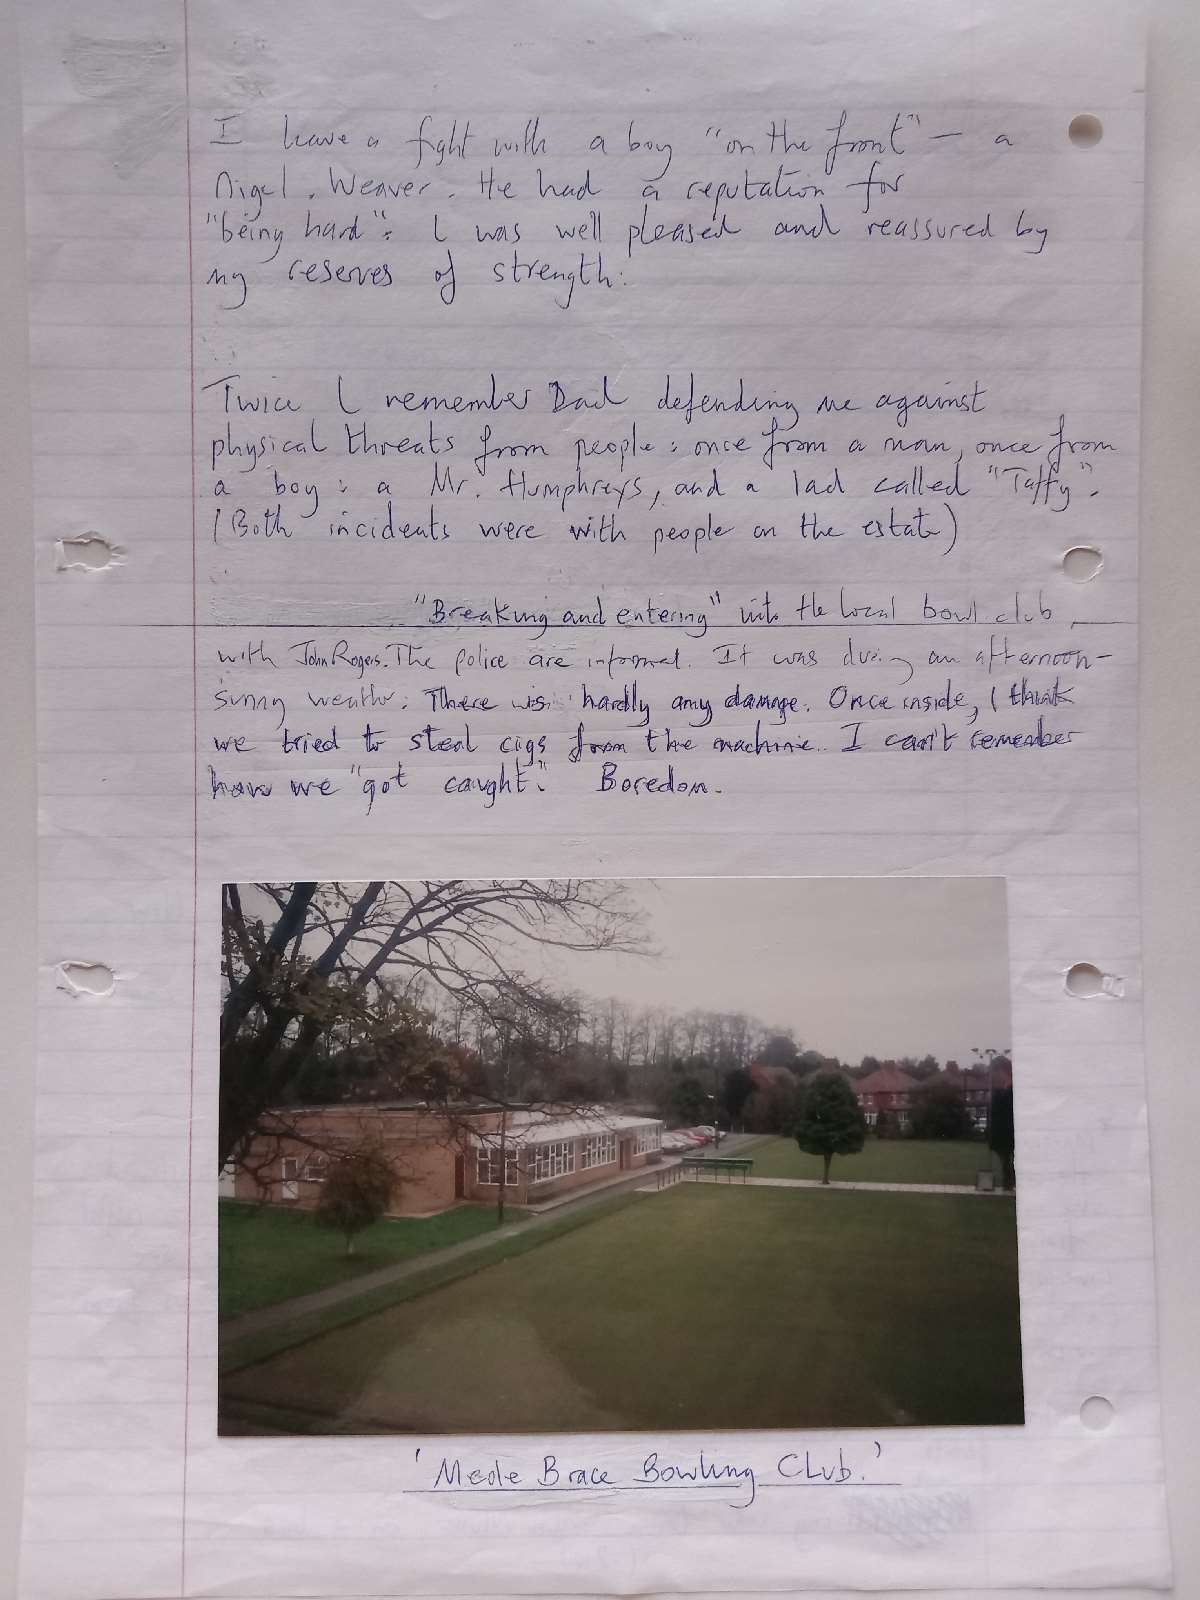 I have a fight with a boy "on the front" — a
Nigel. Weaver. He had a reputation for
"being hard". I was well pleased and reassured by
my reserves of strength.
Twice I remember Dad defending me against
physical threats from people: once from a man, once from
a boy: a Mr. Humphreys, and a lad called "Taffy".
(Both incidents were with people on the estate)
"Breaking and entering" into the local bowl club
with John Rogers. The police are informed. It was during an afternoon -
sunny weather. There was hardly any damage. Once inside, I think
we tried to steal cigs from the machine. I can't remember
how we "got caught". Boredom.
'Meole Brace Bowling Club.'